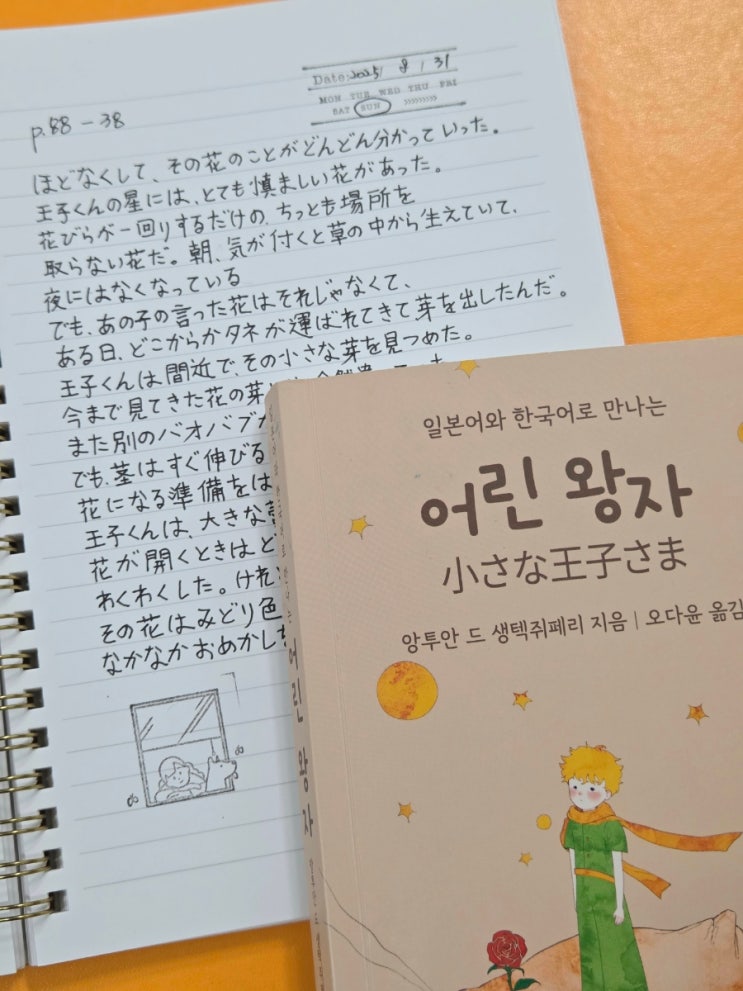 p.88-38
Date: 2025 / 8 / 31
MON TUE WED THU FRI
SAT SUN
ほどなくして、その花のことがどんどん分かっていった。
王子くんの星には、とても慎ましい花があった。
花びらが一回りするだけの、ちっとも場所を
取らない花だ。朝、気が付くと草の中から生えていて、
夜にはなくなっている
でも、あの子の言った花はそれじゃなくて、
ある日、どこからかタネが運ばれてきて芽を出したんだ。
王子くんは間近で、その小さな芽を見つめた。
今まで見てきた花の芽
また別のバオバブ
でも、茎はすぐ伸びる
花になる準備をは
王子くんは、大きな
花が開くときはど
わくわくした。けれ
その花はみどり色
なかなかおめかし
일본어와 한국어로 만나는
어린 왕자
小さな王子さま
앙투안 드 생텍쥐페리 지음 | 오다윤 옮김
어린 왕자